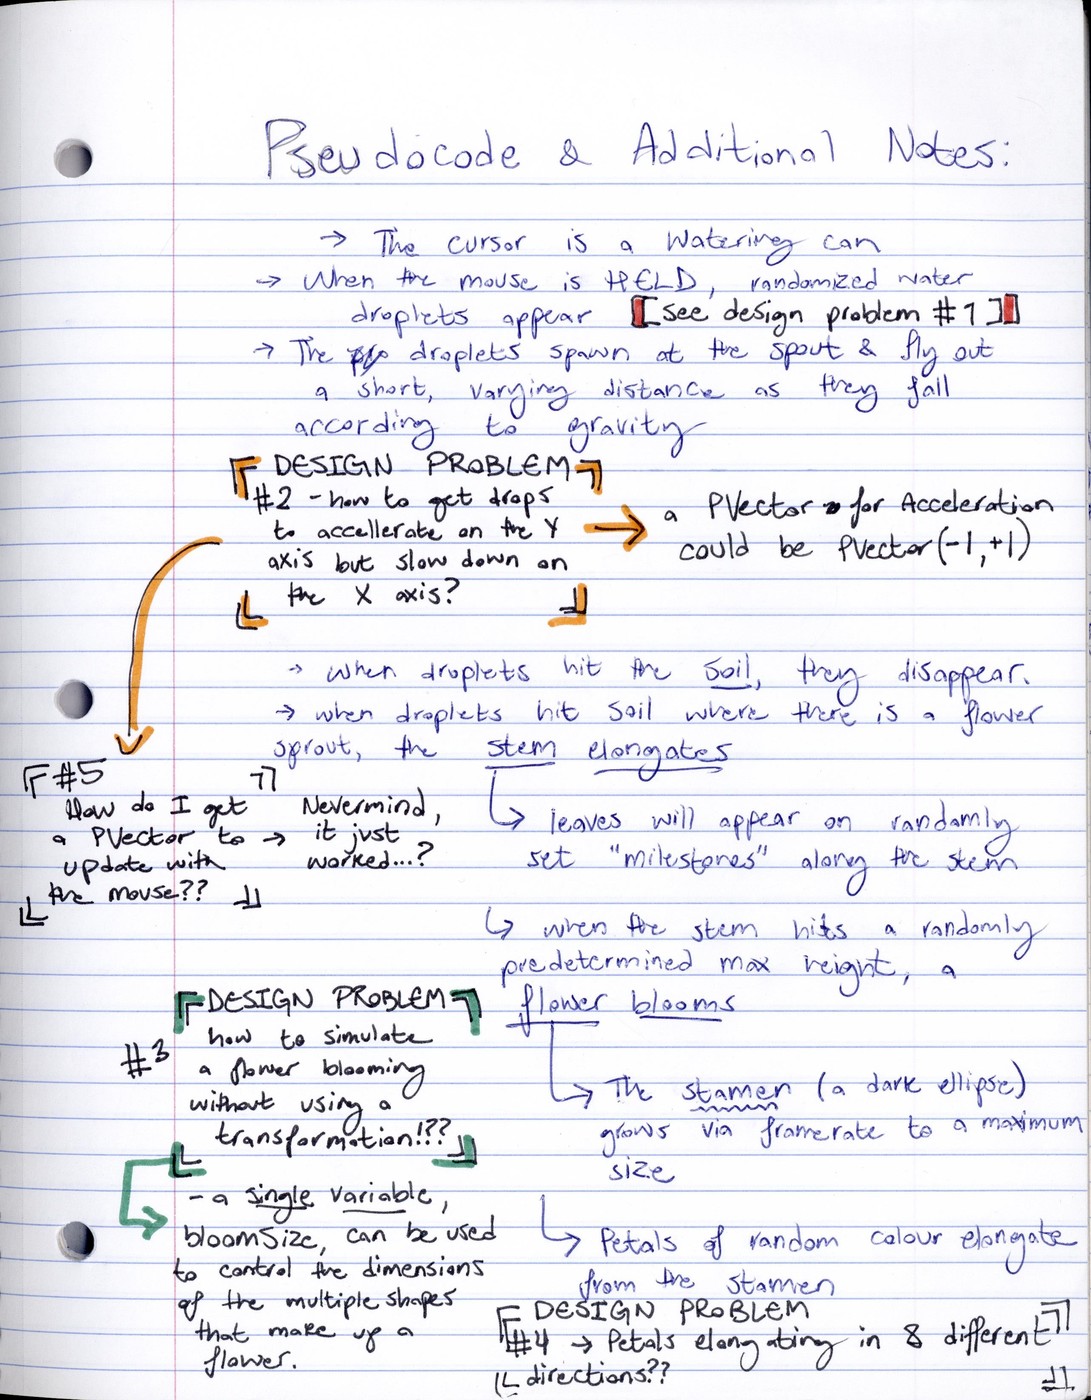 Pseudocode & Additional Notes:
→ The cursor is a watering can
→ When the mouse is HELD, randomized water
droplets appear [see design problem #1]
→ The droplets spawn at the spout & fly out
a short, varying distance as they fall
according to gravity
DESIGN PROBLEM
#2 - how to get drops
to accellerate on the Y
axis but slow down on
the X axis?
→ a PVector for Acceleration
could be PVector(-1,+1)
→ when droplets hit the soil, they disappear.
→ when droplets hit soil where there is a flower
sprout, the stem elongates
#5
How do I get
a PVector to →
update with
the mouse??
Nevermind,
it just
worked...?
↳ leaves will appear on randomly
set "milestones" along the stem
↳ when the stem hits a randomly
predetermined max height, a
flower blooms
DESIGN PROBLEM
#3 how to simulate
a flower blooming
without using a
transformation!??
- a single variable,
bloomSize, can be used
to control the dimensions
of the multiple shapes
that make up a
flower.
↳ The stamen (a dark ellipse)
grows via framerate to a maximum
size
↳ Petals of random colour elongate
from the stamen
DESIGN PROBLEM
#4 → Petals elongating in 8 different
directions??